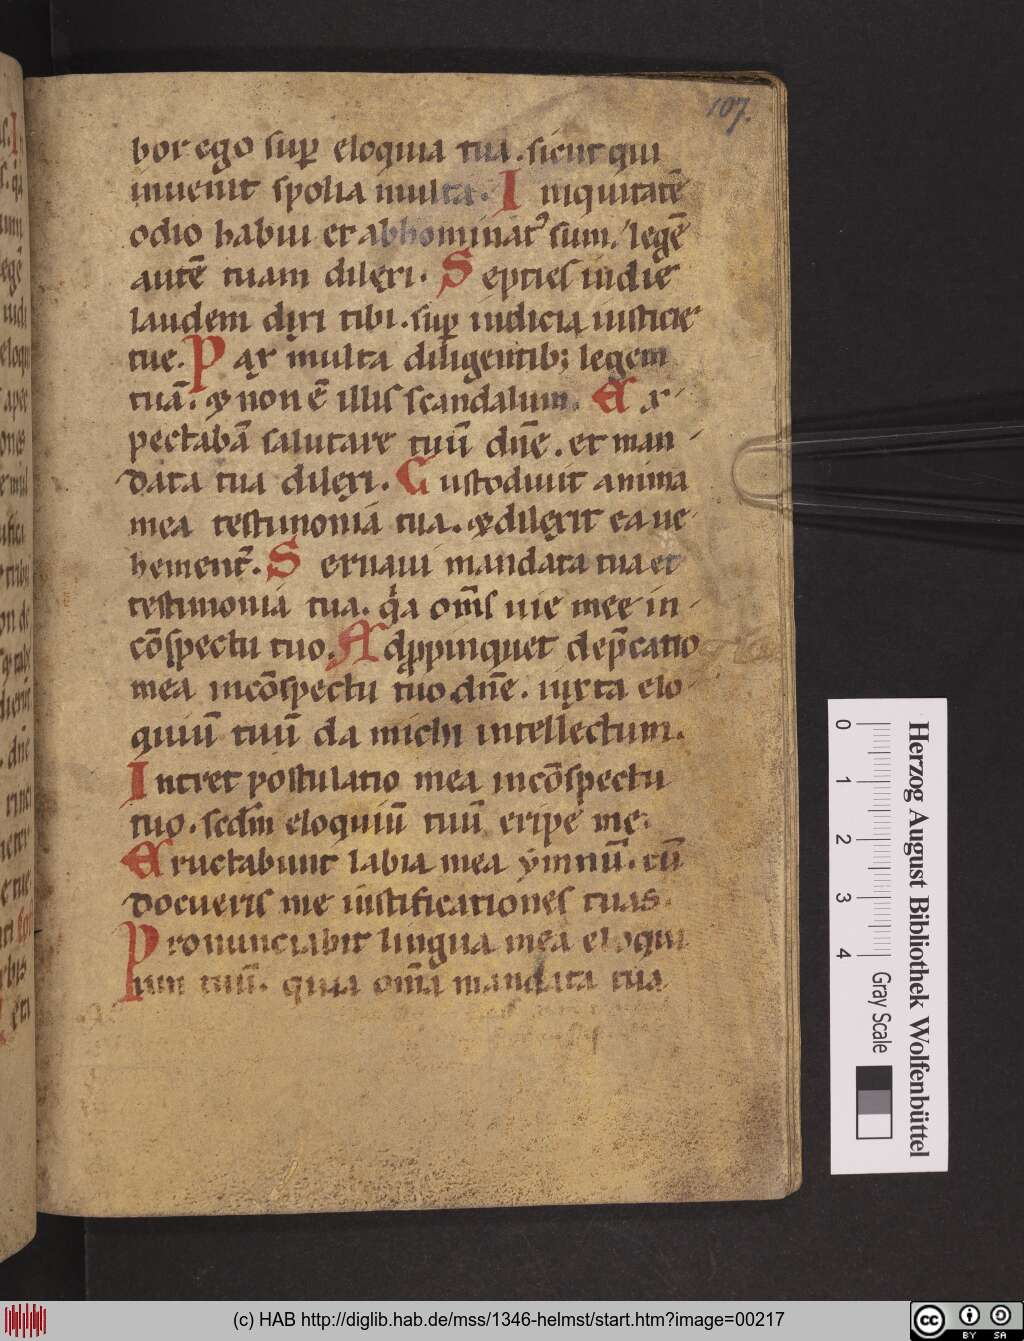 107.
bor ego sup̄ eloquia tua. sicut qui
inuenit spolia multa. I niquitatē
odio habui et abhominat᷒ sum. legē
autē tuam dilexi. S epties in die
laudem dixi tibi. sup̄ iudicia iusticie
tue. P ax multa diligentib; legem
tuā. ⁊ non ē illis scandalum. E x-
pectabā salutare tuū dn̄e. et man-
data tua dilexi. C ustodiuit anima
mea testimonia tua. ⁊ dilexit ea ue-
hement̄. S eruaui mandata tua et
testimonia tua. qͣa om̄s uie mee in-
cōspectu tuo. A dꝓpinquet dep̄catio
mea incōspectu tuo dn̄e. iuxta elo-
quiū tuū da michi intellectum.
Intret postulatio mea incōspectu
tuo. sedm̄ eloquiū tuū eripe me.
Eructabunt labia mea ymnū. cū
docueris me iustificationes tuas.
Pronunciabit lingua mea eloqui
um tuū. quia om̄a mandata tua
0 1 2 3 4
Gray Scale
Herzog August Bibliothek Wolfenbüttel
(c) HAB http://diglib.hab.de/mss/1346-helmst/start.htm?image=00217
cc BY SA